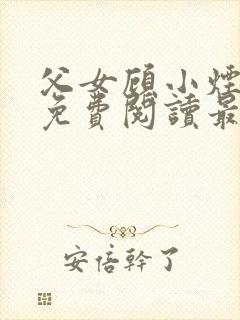 父女顾小煙
免費閱讀最
安倍幹了